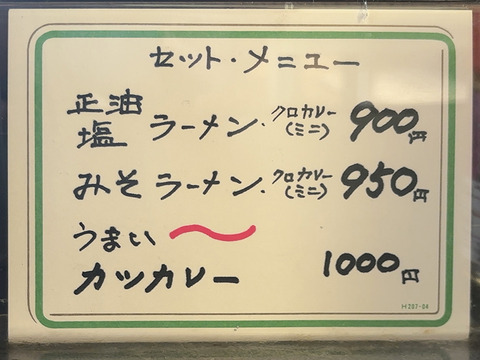 セット・メニュー
正油
塩 ラーメン・クロカレー(ミニ) 900円
みそラーメン・クロカレー(ミニ) 950円
うまい〜
カツカレー 1000円
H207-04